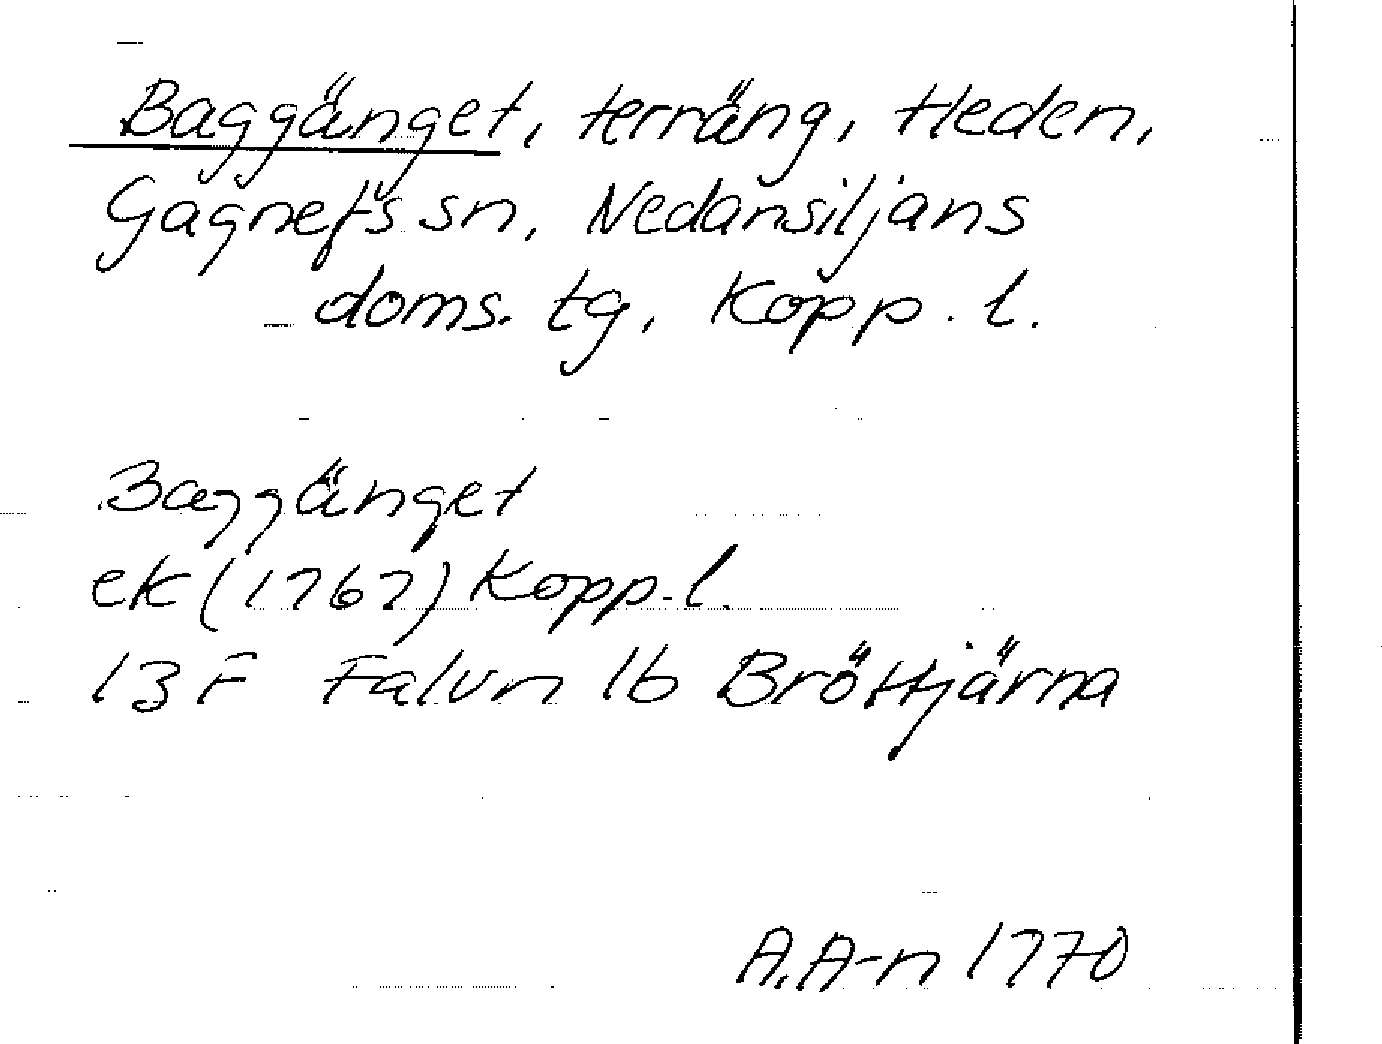 Baggänget, terräng, Heden,
Gagnefs sn, Nedansiljans
doms. tg, Kopp. l.
Baggänget
ek (1767) Kopp. l.
13 F Falun 1b Bröttjärna
A.A-n 1770